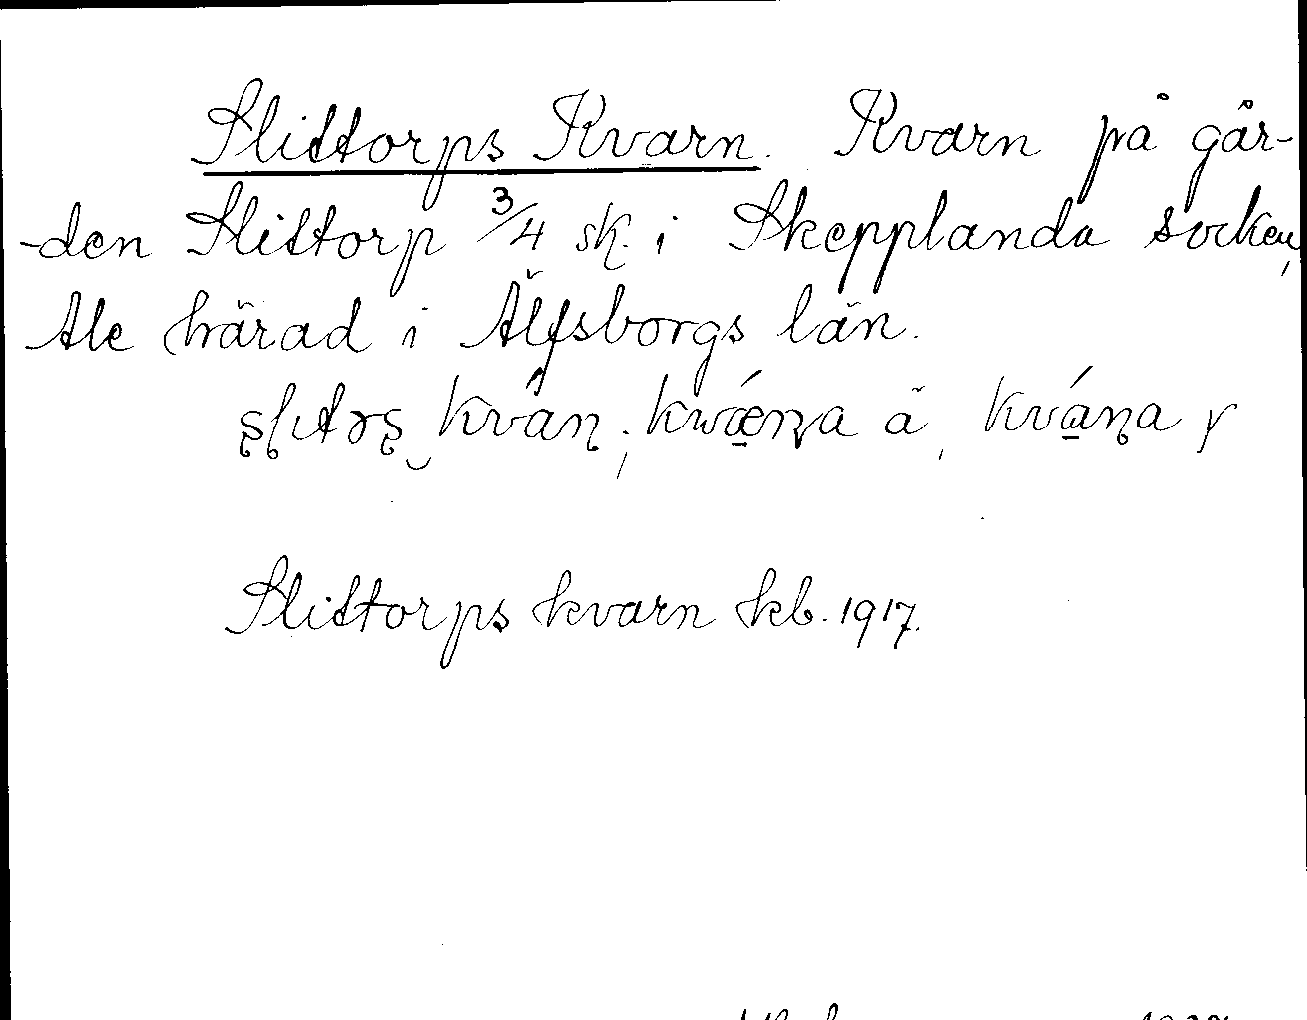 Slittorps Kvarn. Kvarn på går-
-den Slittorp 3/4 sk. i Skepplanda socken,
Ale härad i Älfsborgs län.
kván, kwǽṇa ä, kváṇa y
Slittorps kvarn kb. 1917.